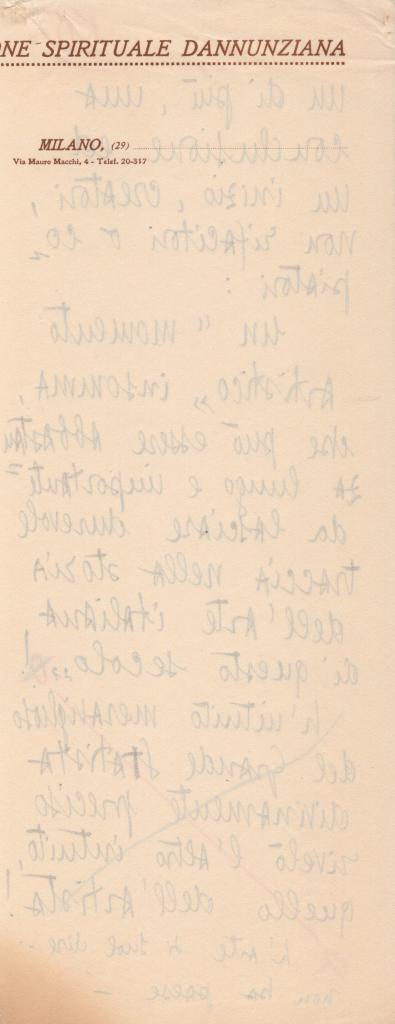 NE SPIRITUALE DANNUNZIANA
MILANO, (29)
Via Mauro Macchi, 4 - Telef. 20-317
un di più, una
conclusione
un inizio, creatori,
non rifacitori o co=
piatori:
un "momento
artistico„ insomma,
che può essere abbastan
za lungo e importante=
da lasciare durevole
traccia nella storia
dell'arte italiana
di questo secolo„!
L'intuito meraviglioso
del Grande Statista
divinamente preciso
rivelò l'altro intuito,
quello dell'Artista!
L'arte si suol dire -
non ha paese -